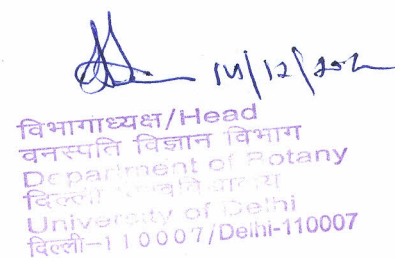 विभागाध्यक्ष/Head
वनस्पति विज्ञान विभाग
Department of Botany
दिल्ली
University of Delhi
दिल्ली-110007/Delhi-110007